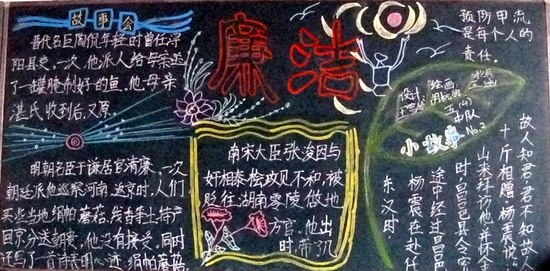 故事会
晋代名臣陶侃年轻时曾任浔
阳县吏。一次,他派人给母亲送
了一罐腌制好的鱼。他母亲
湛氏收到后,又原
明朝名臣于谦居官清廉,一次
朝廷派他巡察河南,返京时,人们
买些当地绢帕蘑菇、线香等土特产
回京分送朝贵。他没有接受,同时
还写了一首南表明心迹:绢帕蘑菇
廉洁
南宋大臣张浚因与
奸相秦桧政见不和,被
贬往湖南零陵做地
方官。他出
时,带了几
预防甲流
是每个人的
责任。
设计
绘画
五(4)
中队
No.2
小故事
故人知君,君不知故人
十斤相赠。杨震说:"
山来拜访他,并怀金
时,昌邑县令密
途中经过昌邑
杨震在赴任
东汉时